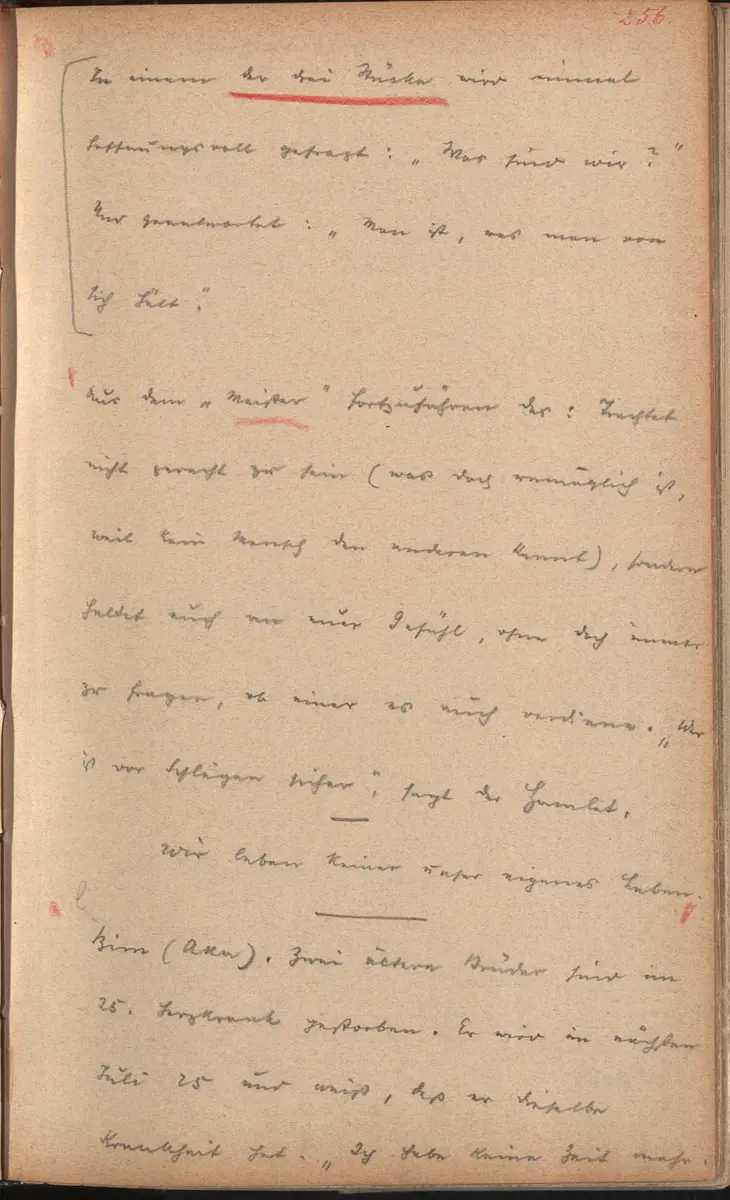 256.
In einem der drei Stücke wird einmal
hoffnungsvoll gefragt: „Was sind wir?"
Und geantwortet: „Man ist, was man von
sich hält".
Aus dem „Meister" fortzuführen des: Trachtet
nicht gerecht zu sein (was doch unmöglich ist,
weil kein Mensch den anderen kennt), sondern
haltet euch an euer Gefühl, ohne doch immer
zu fragen, ob einer es auch verdiene. „Wer
ist vor Schlägen sicher", sagt der Hamlet.
Wir leben keiner unser eigenes Leben.
Zwei ältere Brüder sind im
25. herzkrank gestorben. Er wird im nächsten
Juli 25 und weiß, daß er dieselbe
Krankheit hat. „Ich habe keine Zeit mehr.